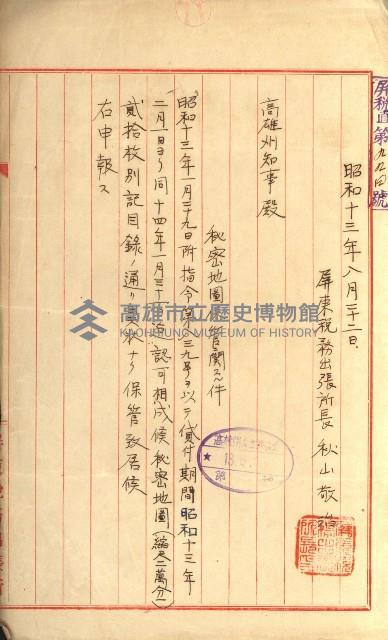 屏税直第九四號
昭和十三年八月二十二日
屏東税務出張所長 秋山敬治
高雄州知事殿
秘密地圖保管ニ關スル件
昭和十三年一月二十九日附指令第三九号ヲ以テ貸付期間昭和十三年
二月一日ヨリ同十四年一月三十一日迄認可相成候秘密地圖(縮尺二萬分ノ一)
貳拾枚別記目録ノ通リ異状ナク保管致居候
右申報ス
高雄市立歷史博物館
KAOHSIUNG MUSEUM OF HISTORY